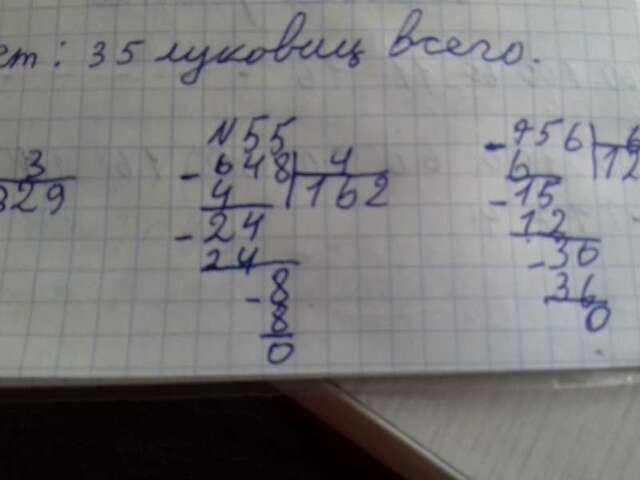 ет: 35 луковиц всего.
3
329
N55
- 648 | 4
4 | 162
- 24
24
- 8
8
0
- 756 | 6
6 | 12
- 15
12
- 36
36
0